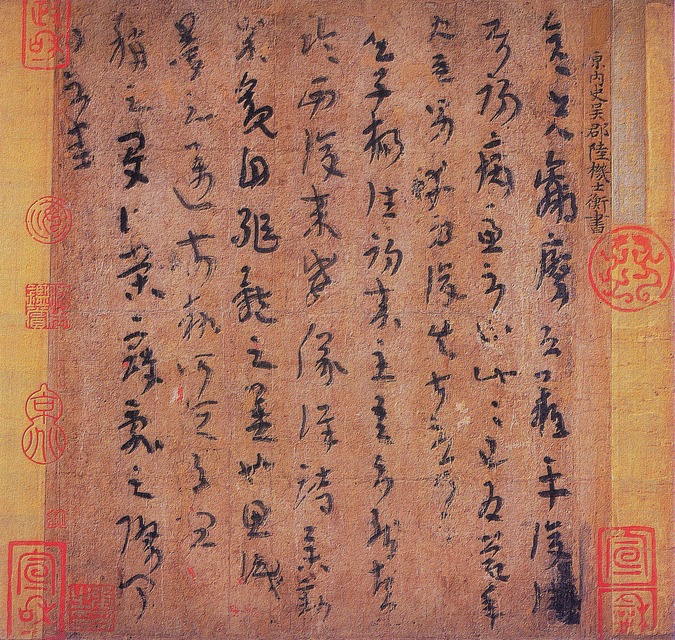 晉內史吳郡陸機士衡書
彦先羸瘵恐難平復往屬
初病慮不止此此已為慶承
使唯男幸為復失前憂耳
吳子楊往初來主吾不能盡
臨西復來威儀詳跱舉動
成觀自軀體之美也思識
量之邁前勢所恒有宜
稱之夏伯榮寇亂之際聞
問不悉
宣和
政和
宣和